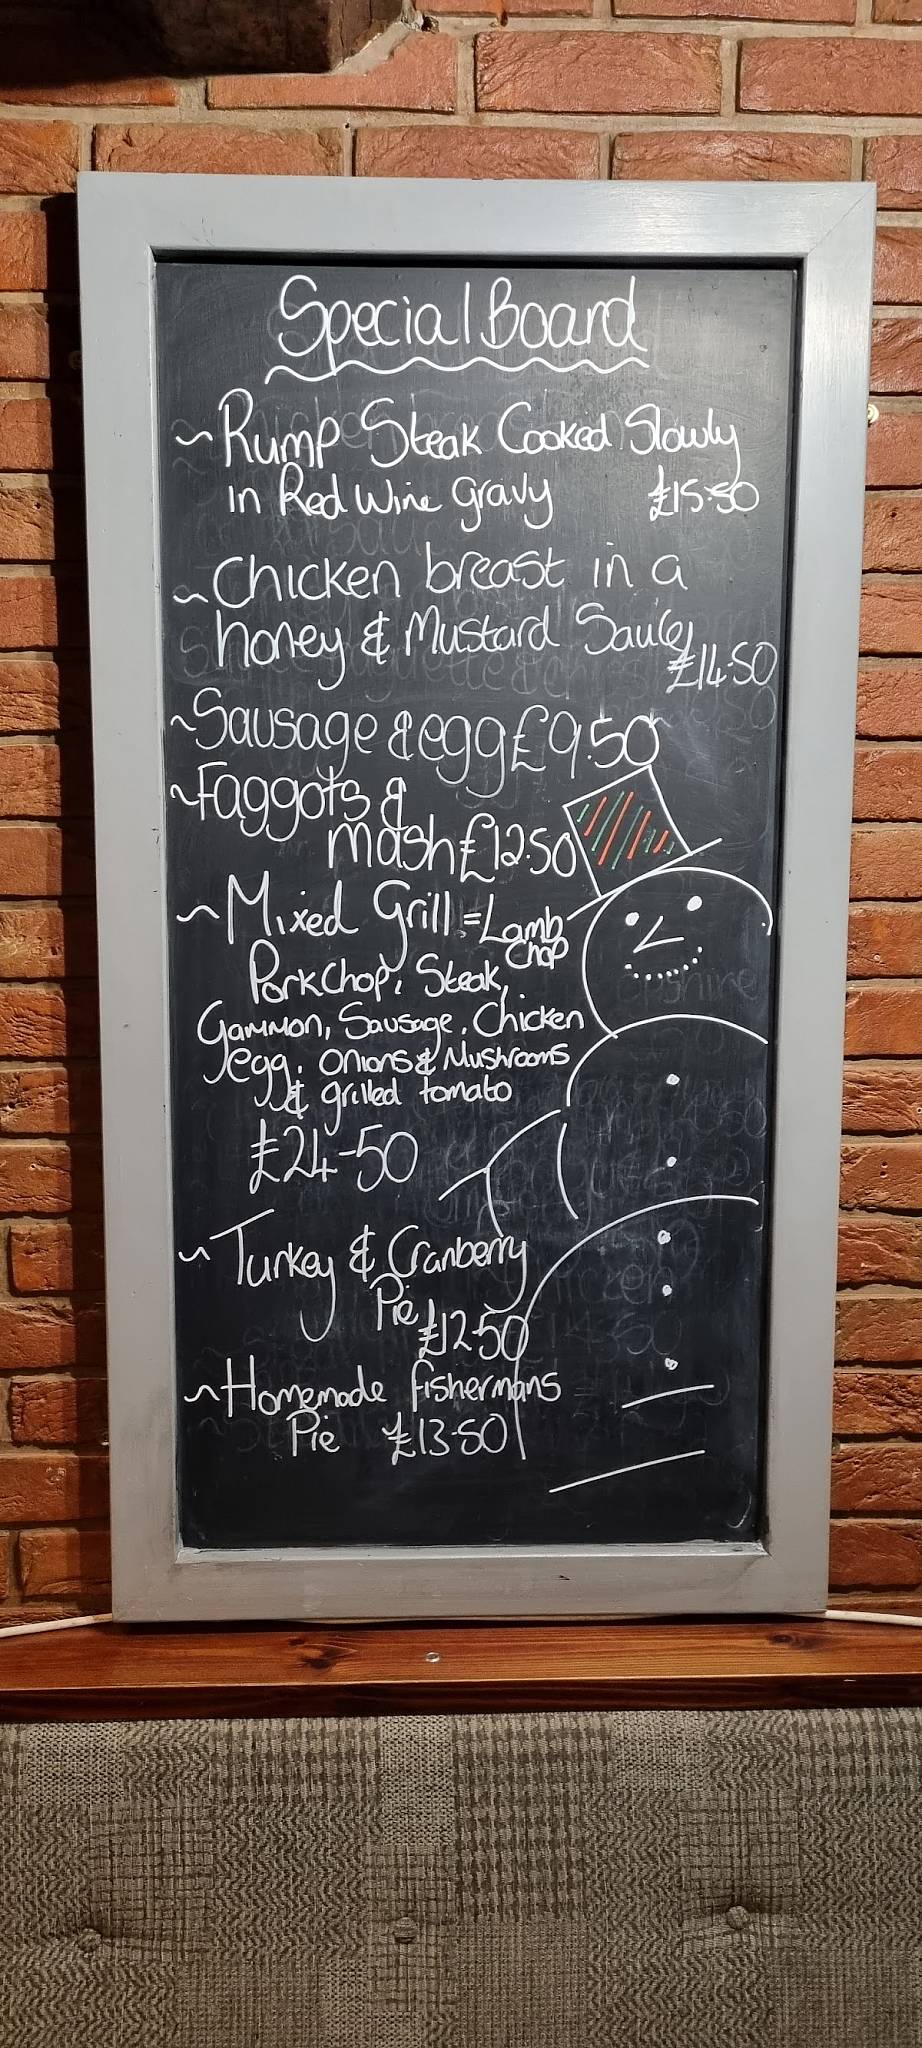 Special Board
~ Rump Steak Cooked Slowly
in Red Wine gravy £15.50
~ Chicken breast in a
honey & Mustard Sauce
£14.50
~ Sausage & egg £9.50
~ Faggots &
mash £12.50
~ Mixed Grill = Lamb
Chop
Pork Chop, Steak,
Gammon, Sausage, Chicken
egg, onions & Mushrooms
& grilled tomato
£24-50
~ Turkey & Cranberry
Pie £12.50
~ Homemade fishermans
Pie £13.50